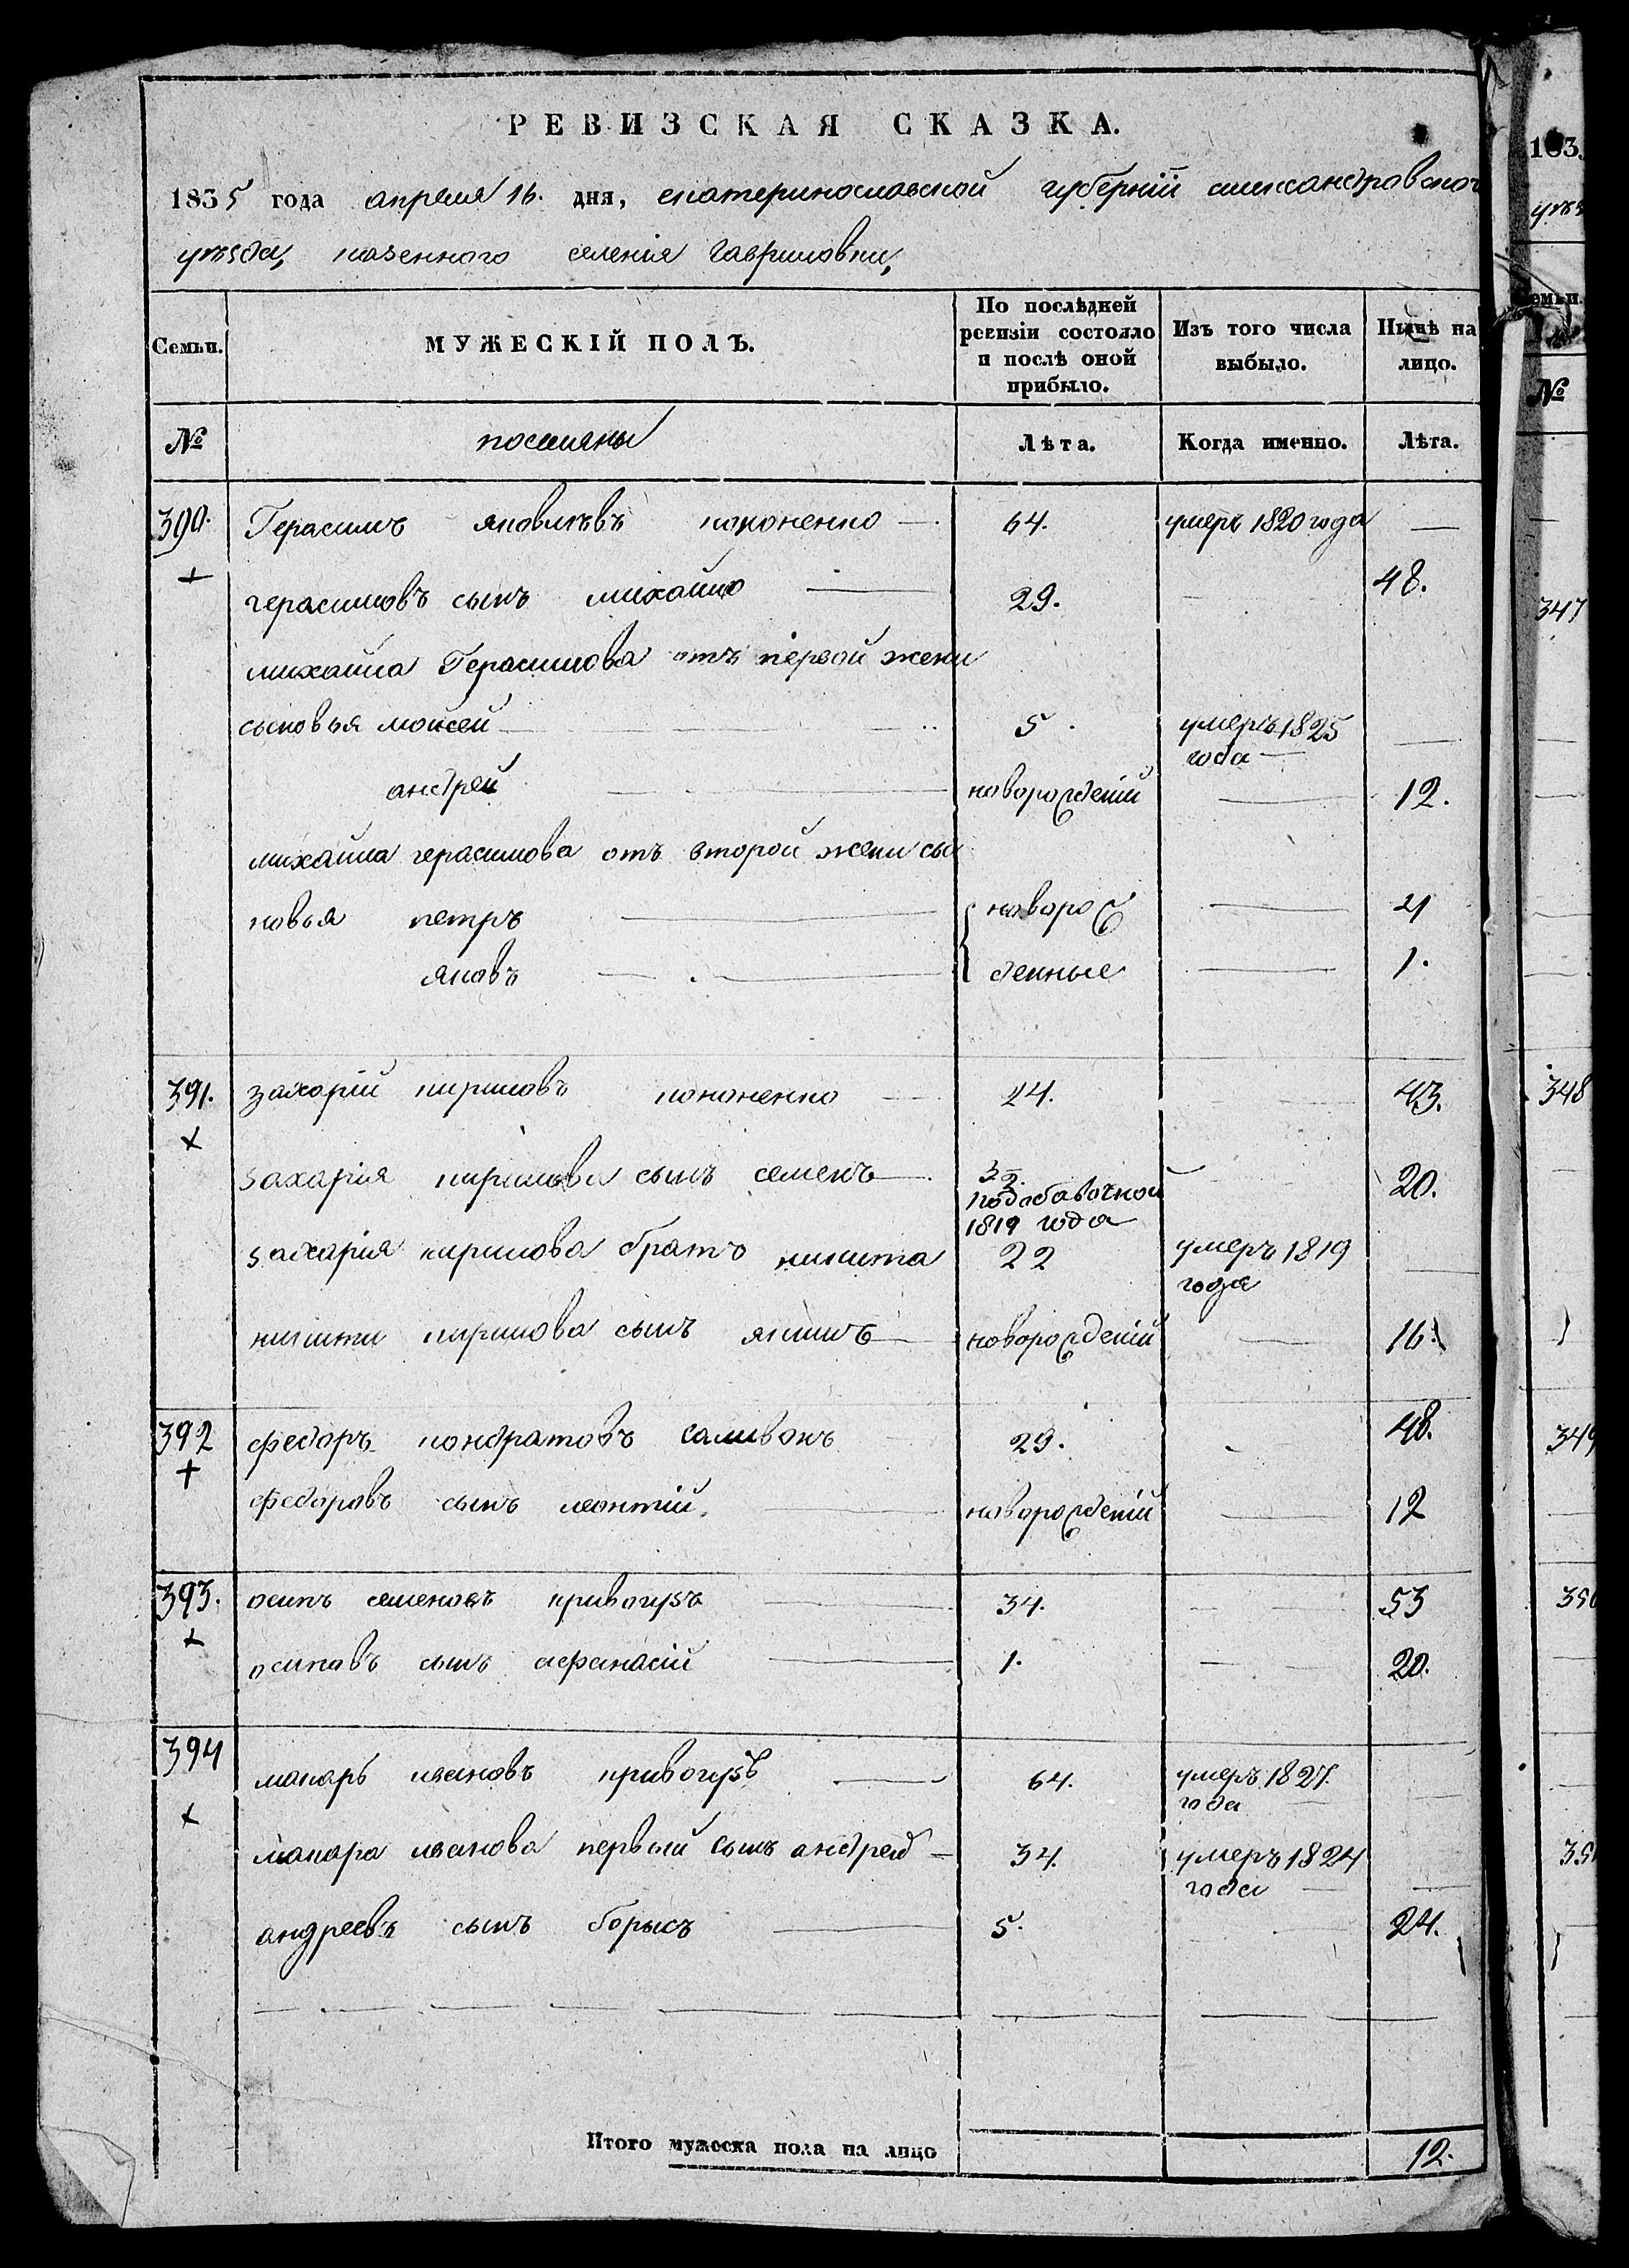 РЕВИЗСКАЯ СКАЗКА.
1835 года апреля 16. дня, екатеринославской губерніи александровского
уѣзда, казенного селенія Гавриловки,
Семьи.
МУЖЕСКІЙ ПОЛЪ.
По послѣдней ревизіи состояло и послѣ оной прибыло.
Изъ того числа выбыло.
Нынѣ на лицо.
№ поселяны Лѣта. Когда именно. Лѣта.
390. Герасимъ яковлѣвъ кононенко — 64. умеръ 1820 года —
герасимовъ сынъ михайло — 29. 48.
михайла Герасимова отъ первой жени
сыновья мойсей — 5. умеръ 1825 —
года —
андрей — новорожденій — 12.
михайла герасимова отъ второй жени сы
новья петръ — новорож — 4
яковъ — денные — 1.
391. захарій кириловъ кононенко — 24. — 43.
захария кирилова сынъ семенъ — 3/2. — 20.
подобавочной
1819 года
захария кирилова братъ никита 22 умеръ 1819 —
года
никити кирилова сынъ якимъ — новорожденій — 16.
392 федоръ кондратовъ саливонъ 29. 48.
федоровъ сынъ леонтій. — новорожденій — 12
393. осипъ семеновъ кривогузъ — 34. — 53
осиповъ сынъ афанасій — 1. — 20.
394 макаръ ивановъ кривогузъ — 64. умеръ 1827. —
года —
макара иванова первый сынъ андрей — 34. умеръ 1824 —
года —
андреевъ сынъ борысъ — 5. 24.
Итого мужеска пола на лицо 12.
183
уѣз
емьи.
№
347
348
349
350
351